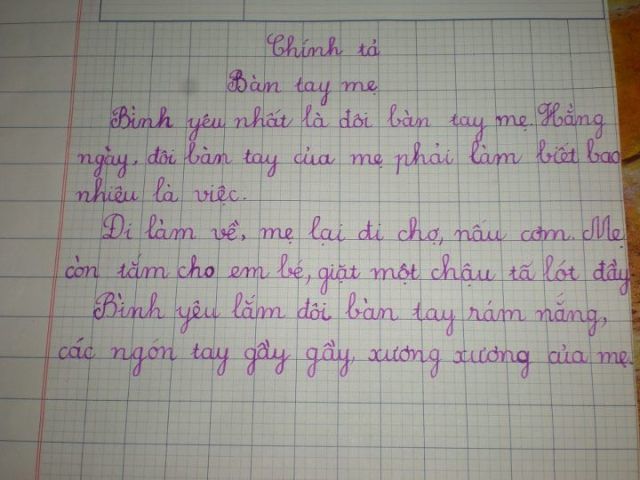 Chính tả
Bàn tay mẹ
Bình yêu nhất là đôi bàn tay mẹ. Hằng
ngày, đôi bàn tay của mẹ phải làm biết bao
nhiêu là việc.
Đi làm về, mẹ lại đi chợ, nấu cơm. Mẹ
còn tắm cho em bé, giặt một chậu tã lót đầy
Bình yêu lắm đôi bàn tay rám nắng,
các ngón tay gầy gầy, xương xương của mẹ.